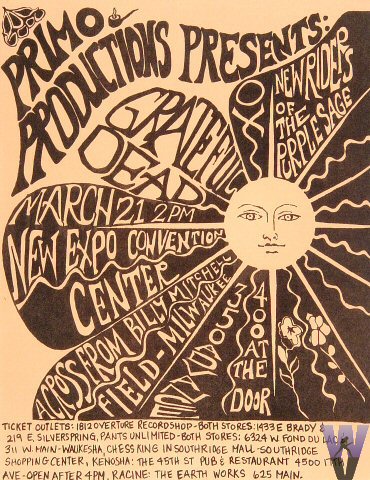 PRIMO
PRODUCTIONS PRESENTS:
GRATEFUL
DEAD
OX
NEW RIDERS
OF THE
PURPLE SAGE
MARCH 21 2PM
NEW EXPO CONVENTION
CENTER
ACROSS FROM BILLY MITCHELL
FIELD - MILWAUKEE
ONLY 350
400 AT
THE
DOOR
TICKET OUTLETS: 1812 OVERTURE RECORD SHOP - BOTH STORES: 1433 E BRADY &
219 E. SILVERSPRING, PANTS UNLIMITED - BOTH STORES: 6324 W. FOND DU LAC &
311 W. MAIN - WAUKESHA, CHESS KING IN SOUTHRIDGE MALL - SOUTHRIDGE
SHOPPING CENTER, KENOSHA: THE 45TH ST PUB & RESTAURANT 4500 17TH
AVE - OPEN AFTER 4PM, RACINE: THE EARTH WORKS 625 MAIN.
W